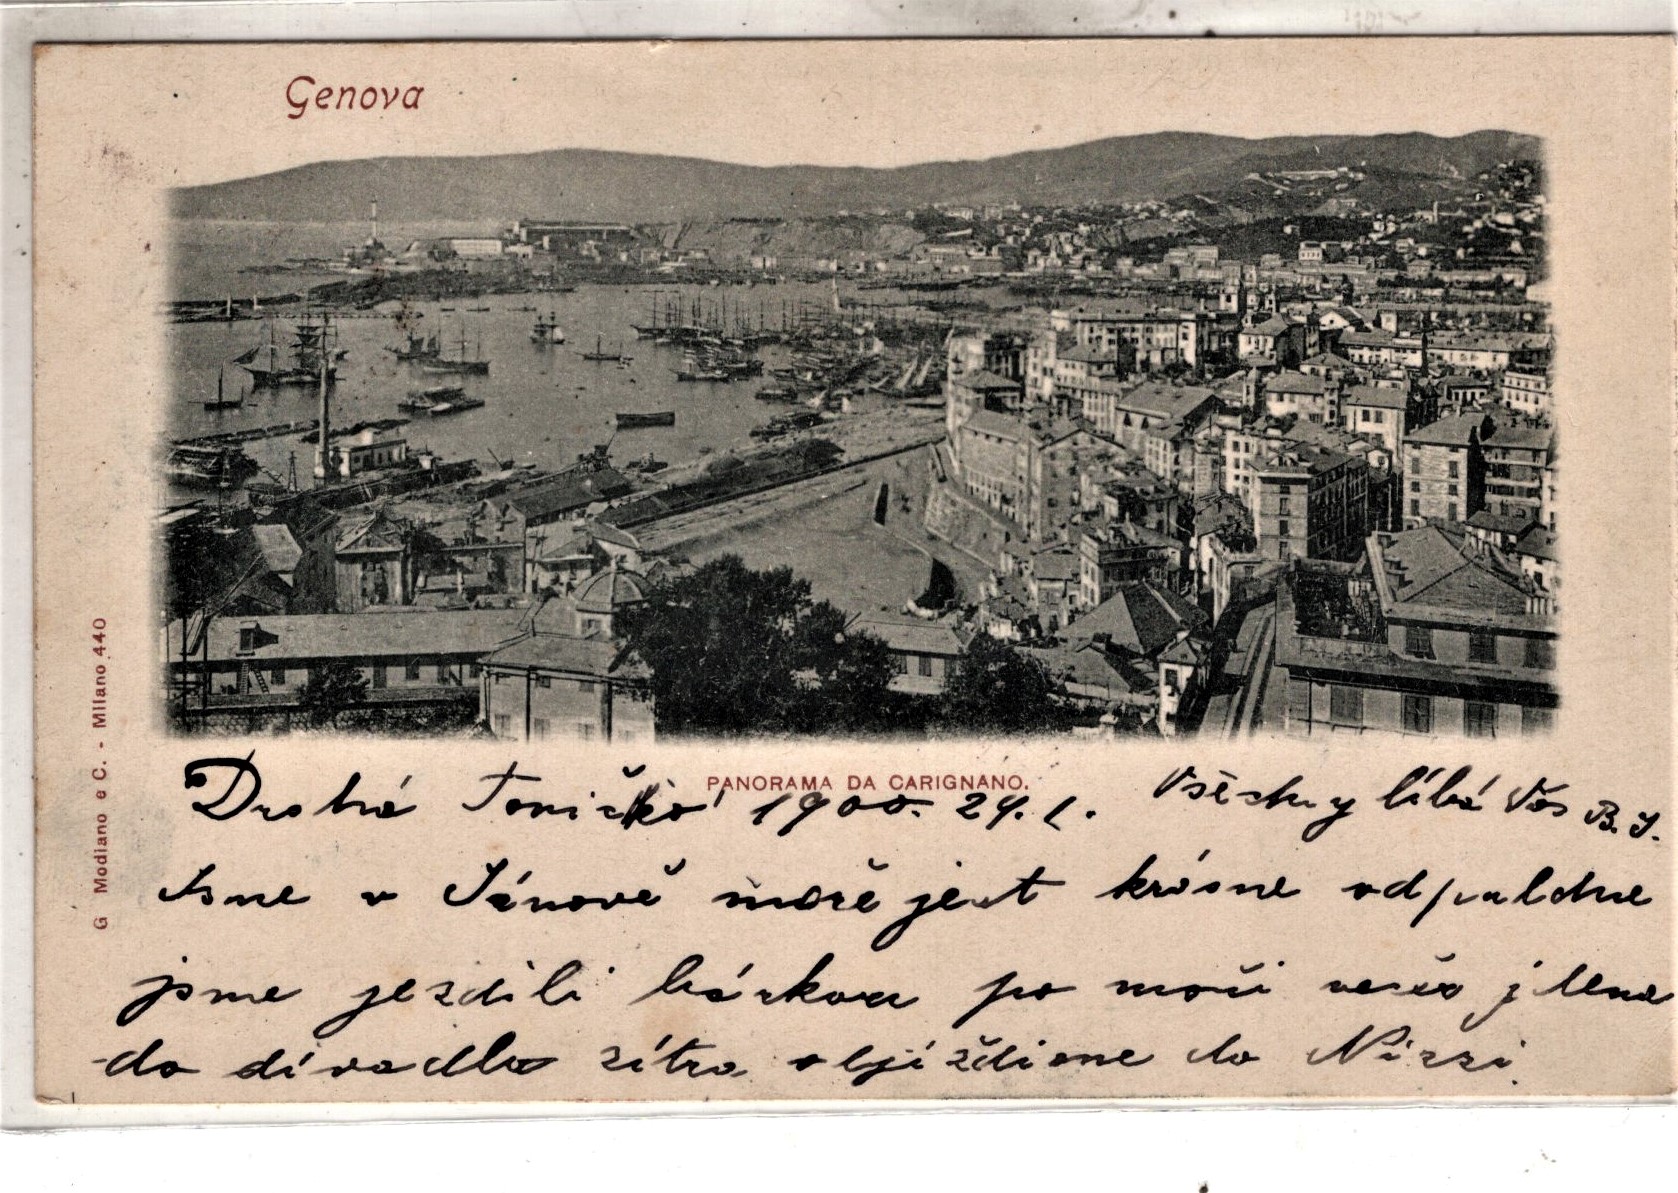 Genova
G Modiano e C. - Milano 440
PANORAMA DA CARIGNANO.
Drahá Toničko 1900. 24. 1. Všechny líbá Vás B. J.
Jsme v Jánově moře jest krásne odpuldne
jsme jezdili bárkou po moři večer jdeme
do divadla zítra objíždíme do Nizzi